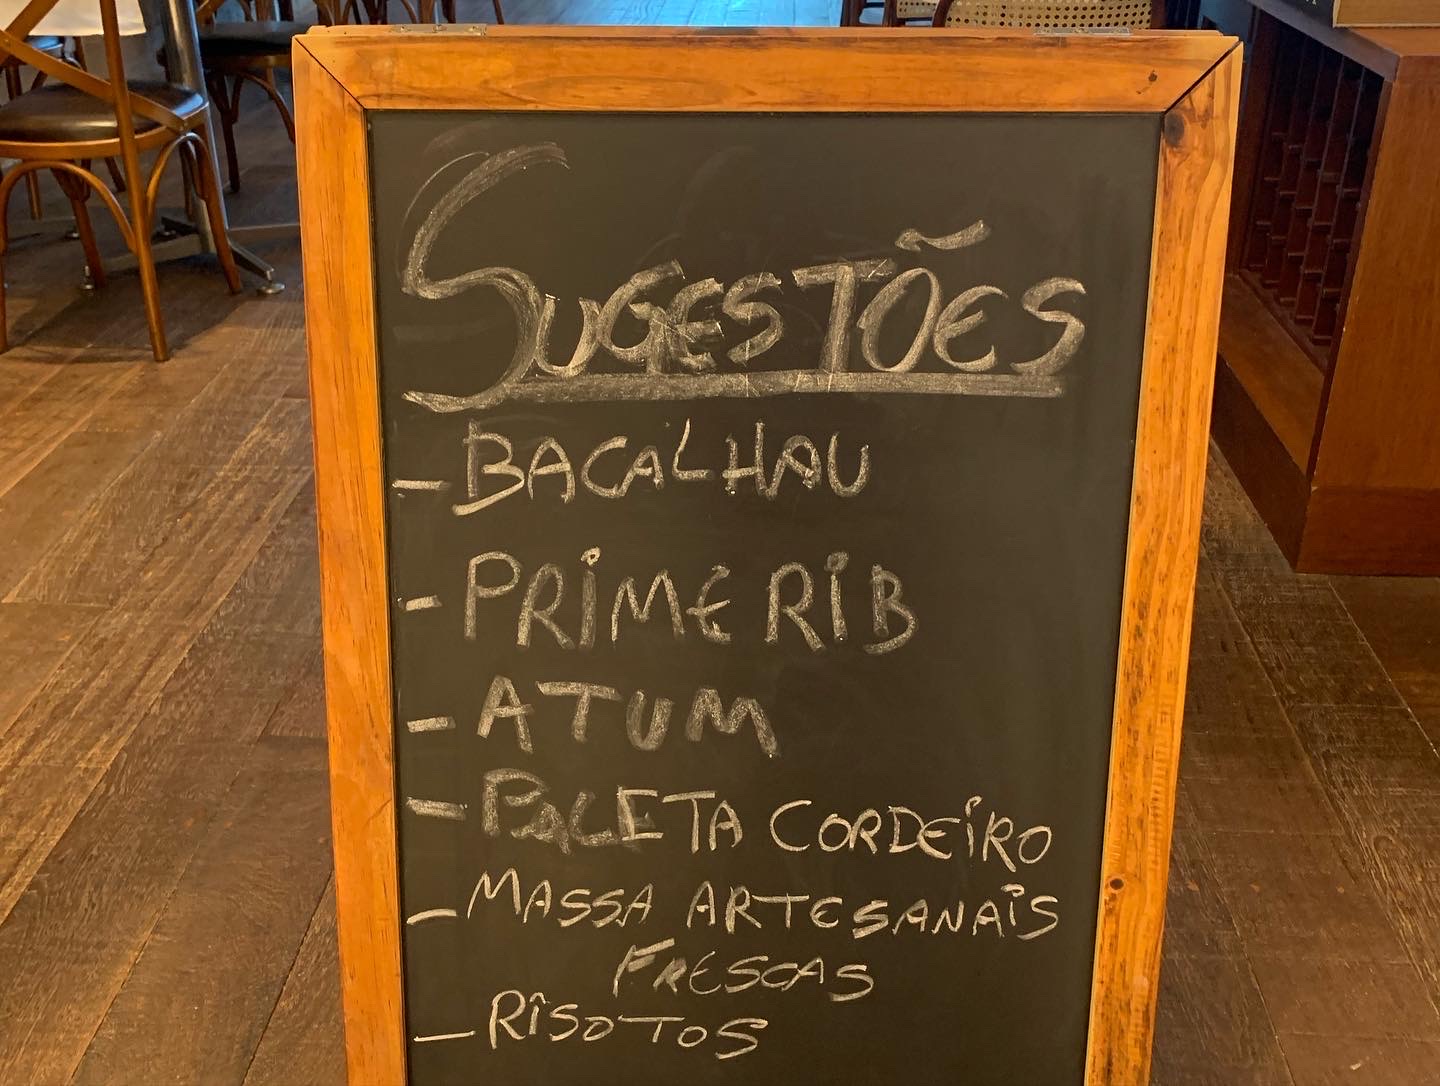 SUGESTÕES
- BACALHAU
- PRIME RIB
- ATUM
- PALETA CORDEIRO
- MASSA ARTESANAIS
FRESCAS
- RISOTOS